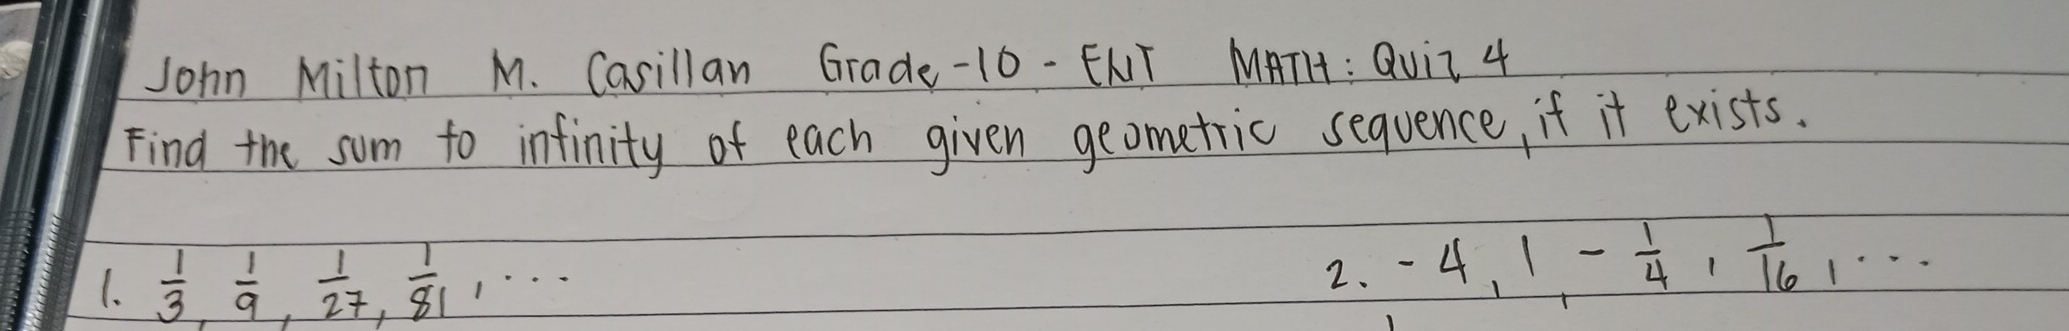 John Milton M. Casillan Grade-10 - ENT MATH: Quiz 4
Find the sum to infinity of each given geometric sequence, if it exists.
1. 1/3, 1/9, 1/27, 1/81, ... 2. -4, 1, -1/4, 1/16, ...